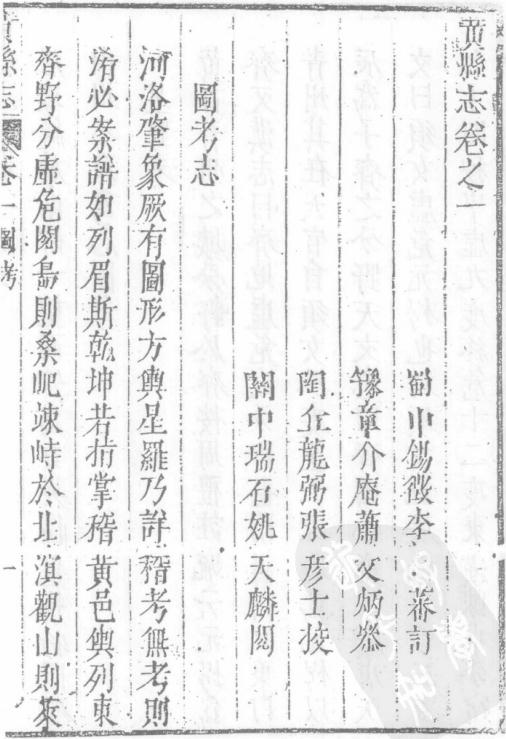 黃縣志卷之一
蜀中錫徵李 蕃訂
豫章介庵蕭 文炳叅
閩𠀉龍弼張 彥士挍
關中瑞石姚 天麟閱
圖考志
河洛肇象厥有圖形方輿星羅乃詳稽考無考則
淆必案譜如列眉斯乾坤若指掌稽黃邑輿列東
齊野分虛危閱島則桑岘竦峙於北濵觀山則萊
黃縣志 卷一 圖考 一